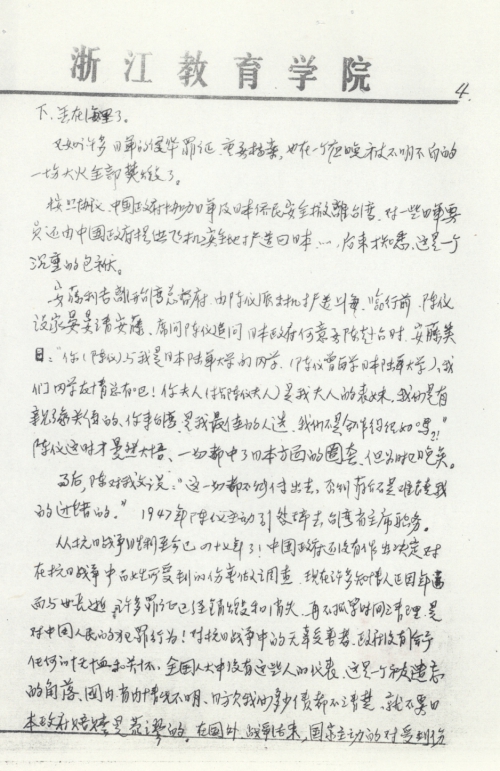 浙江教育学院
4.
下、丢在海里了。
又如许多日军的侵华罪证、重要档案,也在一个夜晚被不明不白的
一场大火全部焚毁了。
按照协议、中国政府协助日军及日本侨民安全撤离台湾、对一些日军要
员还由中国政府提供飞机安全地护送回日本……后来才知悉,这是一个
沉重的包袱。
安藤利吉离开台湾总督府、由陈仪派专机护送。临行前、陈仪
设家宴宴请安藤、席间陈仪追问日本政府何意要陈赴台时、安藤笑
曰:"你(陈仪)与我是日本陆军大学的同学、(陈仪曾留学日本陆军大学)、我
们同学友情总有吧!你夫人(指陈仪夫人)是我夫人的表妹,我们是有
亲戚关系的、你来台湾、是我最佳的人选、我们不是合作得很好吗?!"
陈仪这时才晃然大悟、一切都中了日本方面的圈套、但为时已晚矣。
事后,陈对我父说:"这一切都不能传出去,否则蒋介石是唯我是我
的过错的。"1947年陈仪主动引咎辞去台湾省主席职务。
从抗日战争胜利至今已四十几年了!中国政府还没有作出决定对
在抗日战争中百姓所受到的伤害做过调查、现在许多知情人正因年高
而与世长逝、许多罪证已经销毁和消失、再不抓紧时间清理、是
对中国人民的犯罪行为!对抗日战争中的无辜受害者、政府没有给予
任何的抚恤和关怀、全国人大中没有这些人的代表、这是一个被遗忘
的角落、国内有内情况不明、日方欠我们多少债都不清楚、就不要日
本政府赔偿是荒谬的。在国外、战争结束、国家主动的对受到伤